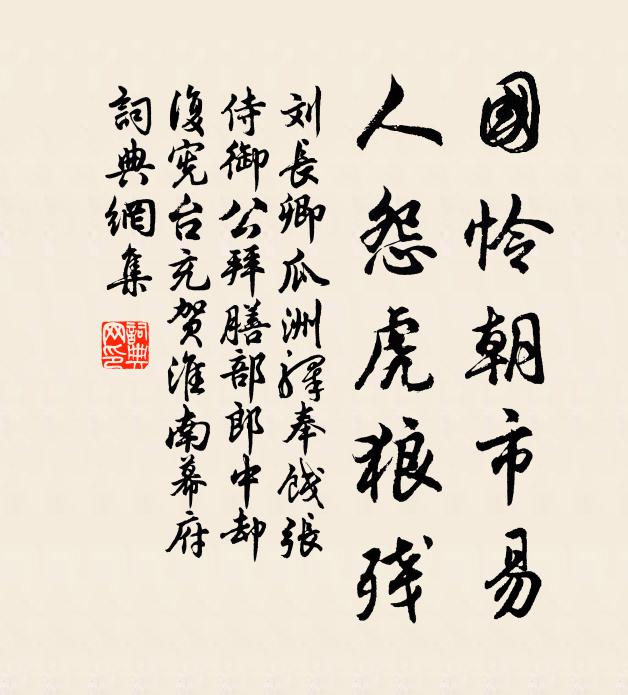 國怜朝市易
人怨虎狼残
刘長卿瓜洲驛奉餞張
侍御公拜膳部郎中却
復宪台充贺淮南幕府
詞典網集
詞典
网印